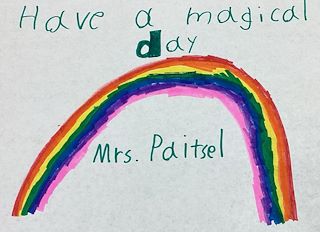 Have a magical
day
Mrs. Paitsel